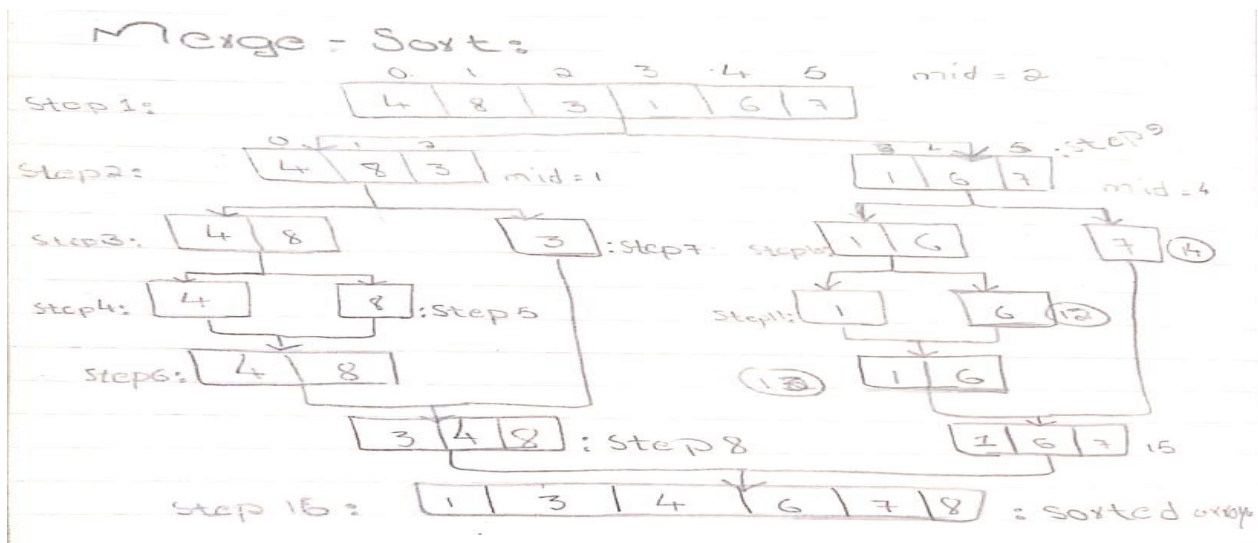 Merge - Sort:
0 1 2 3 4 5 mid = 2
Step 1: 4 8 3 1 6 7
0 1 2 3 4 5 : step 9
Step 2: 4 8 3 mid = 1 1 6 7 mid = 4
Step 3: 4 8 3 : step 7 step 10: 1 6 7 14
step 4: 4 8 : step 5 step 11: 1 6 12
step 6: 4 8 13 1 6
3 4 8 : step 8 1 6 7 15
step 16: 1 3 4 6 7 8 : sorted array